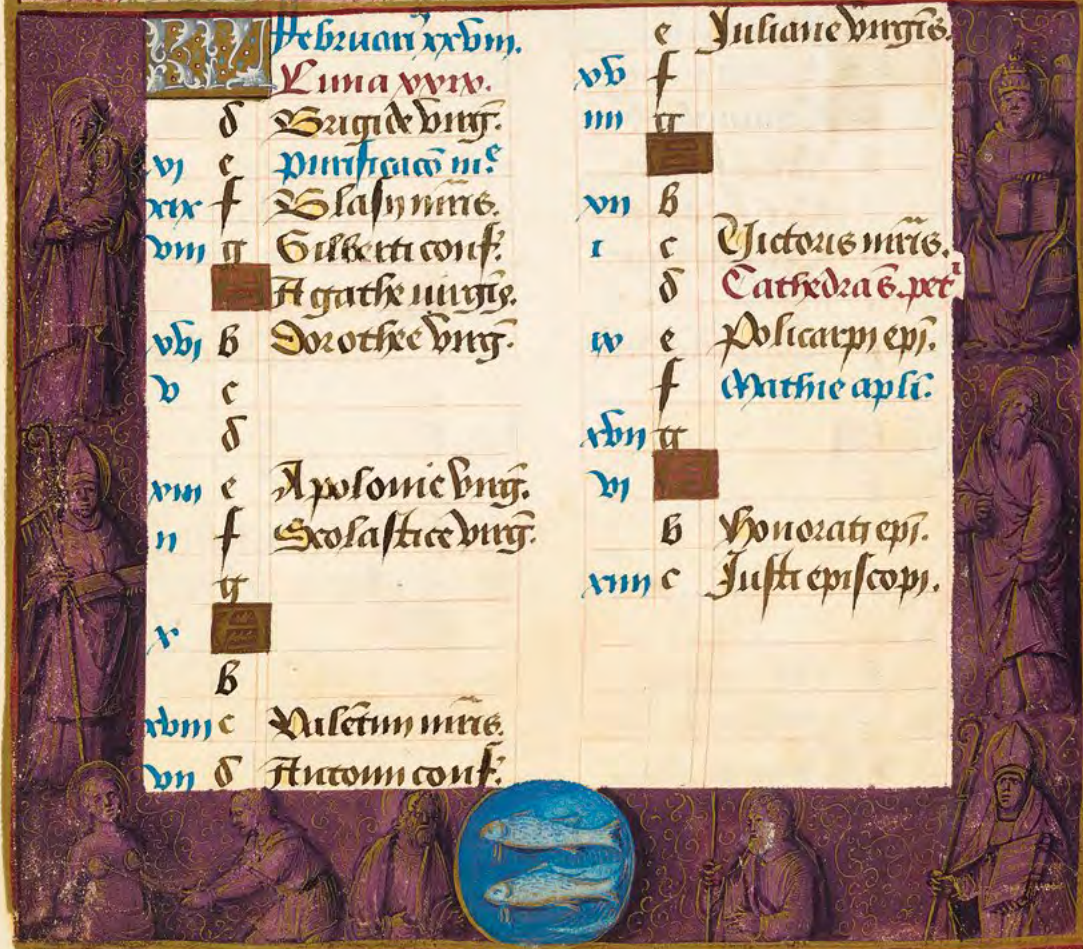 KL Februari xxviii.
Luna xxix.
d Brigide virḡ.
vi e Purificaco᷒ me
xix f Blasii mr̄is.
viii g Gilberti conf.
Agathe virgis.
xvi b Dorothee virḡ.
v c
d
xiii e Apolonie virḡ.
ii f Scolastice virḡ.
g
x
b
xviii c Valētini mr̄is.
vii d Antonii conf.
e Juliane virgis.
xv f
iiii g
xii b
i c Victoris mr̄is.
d Cathedra s. petri
ix e Policarpi epi.
f Mathie apli.
xvii g
vi
b Honorati epi.
xiiii c Justi episcopi.